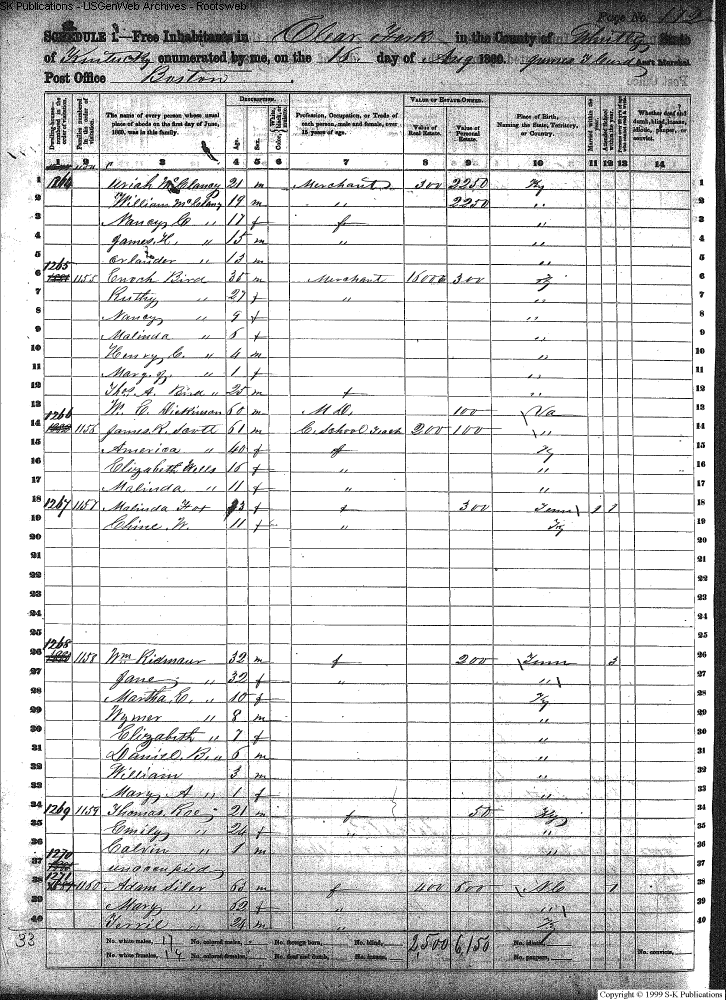 SK Publications - USGenWeb Archives - Rootsweb
Page No. 112
SCHEDULE 1.—Free Inhabitants in Clear Fork in the County of Whitley State
of Kentucky enumerated by me, on the 15 day of Aug 1860. Ass't Marshal
Post Office Boston
Dwelling-houses— numbered in the order of visitation.
Families numbered in the order of visitation.
The name of every person whose usual place of abode on the first day of June, 1860, was in this family.
DESCRIPTION.
Age.
Sex.
Color,
Profession, Occupation, or Trade of each person, male and female, over 15 years of age.
VALUE OF ESTATE OWNED.
Value of Real Estate.
Value of Personal Estate.
Place of Birth, Naming the State, Territory, or Country.
Married within the year.
Whether deaf and dumb, blind, insane, idiotic, pauper, or convict.
2 3 4 5 6 7 8 9 10 11 12 13 14
1 1264 Uriah McClancy 21 m Merchant 300 2250 Ky 1
2 William McClancy 19 m " 2250 " 2
3 Nancy C " 17 f " 3
4 James H. " 15 m " " 4
5 Orlander " 13 m " 5
6 1265 1155 Enoch Bird 35 m Merchant 300 Ky 6
7 Ruthy " 27 f " " 7
8 Nancy " 9 f " 8
9 Malinda " 6 f 9
10 Henry C. " 4 m " 10
11 " 1 f " 11
12 Thos A. Bird " 25 m " 12
13 Wm C. Dickinson 60 m M D. 100 Va 13
14 1266 1156 James R. Scott 61 m C. School Teach 200 100 " 14
15 America " 40 f Ky 15
16 Elizabeth Wells 16 f " " 16
17 Malinda " 11 f " " 17
18 1267 1157 Malinda Fox f 300 Tenn 18
19 W. 11 f " Ky 19
20 20
21 21
22 22
23 23
24 24
25 25
26 1268 1158 Wm Ridmaur 32 m 200 Tenn 26
27 Jane " 32 f " " 27
28 Martha C. " 10 f Ky 28
29 Wymer " 8 m " 29
30 Elizabeth " 7 f " 30
31 Daniel B. " 6 m " 31
32 William 3 m " 32
33 Mary A " 1 f " 33
34 1269 1159 Thomas Roe 21 m 50 Ky 34
35 Emily " 24 f " " 35
36 Calvin " 1 m " 36
37 1270 unoccupied 37
38 1271 1160 Adam Siler 63 m 400 600 N.C. 1 38
39 Mary " 52 f " " 39
40 " 24 m Ky 40
33 No. white males, 17 No. colored males, No. foreign born, No. blind, 2,500 6,150 No. idiotic,
No. white females, No. colored females, No. deaf and dumb, No. insane, No. paupers, No. convicts,
Copyright © 1999 S-K Publications